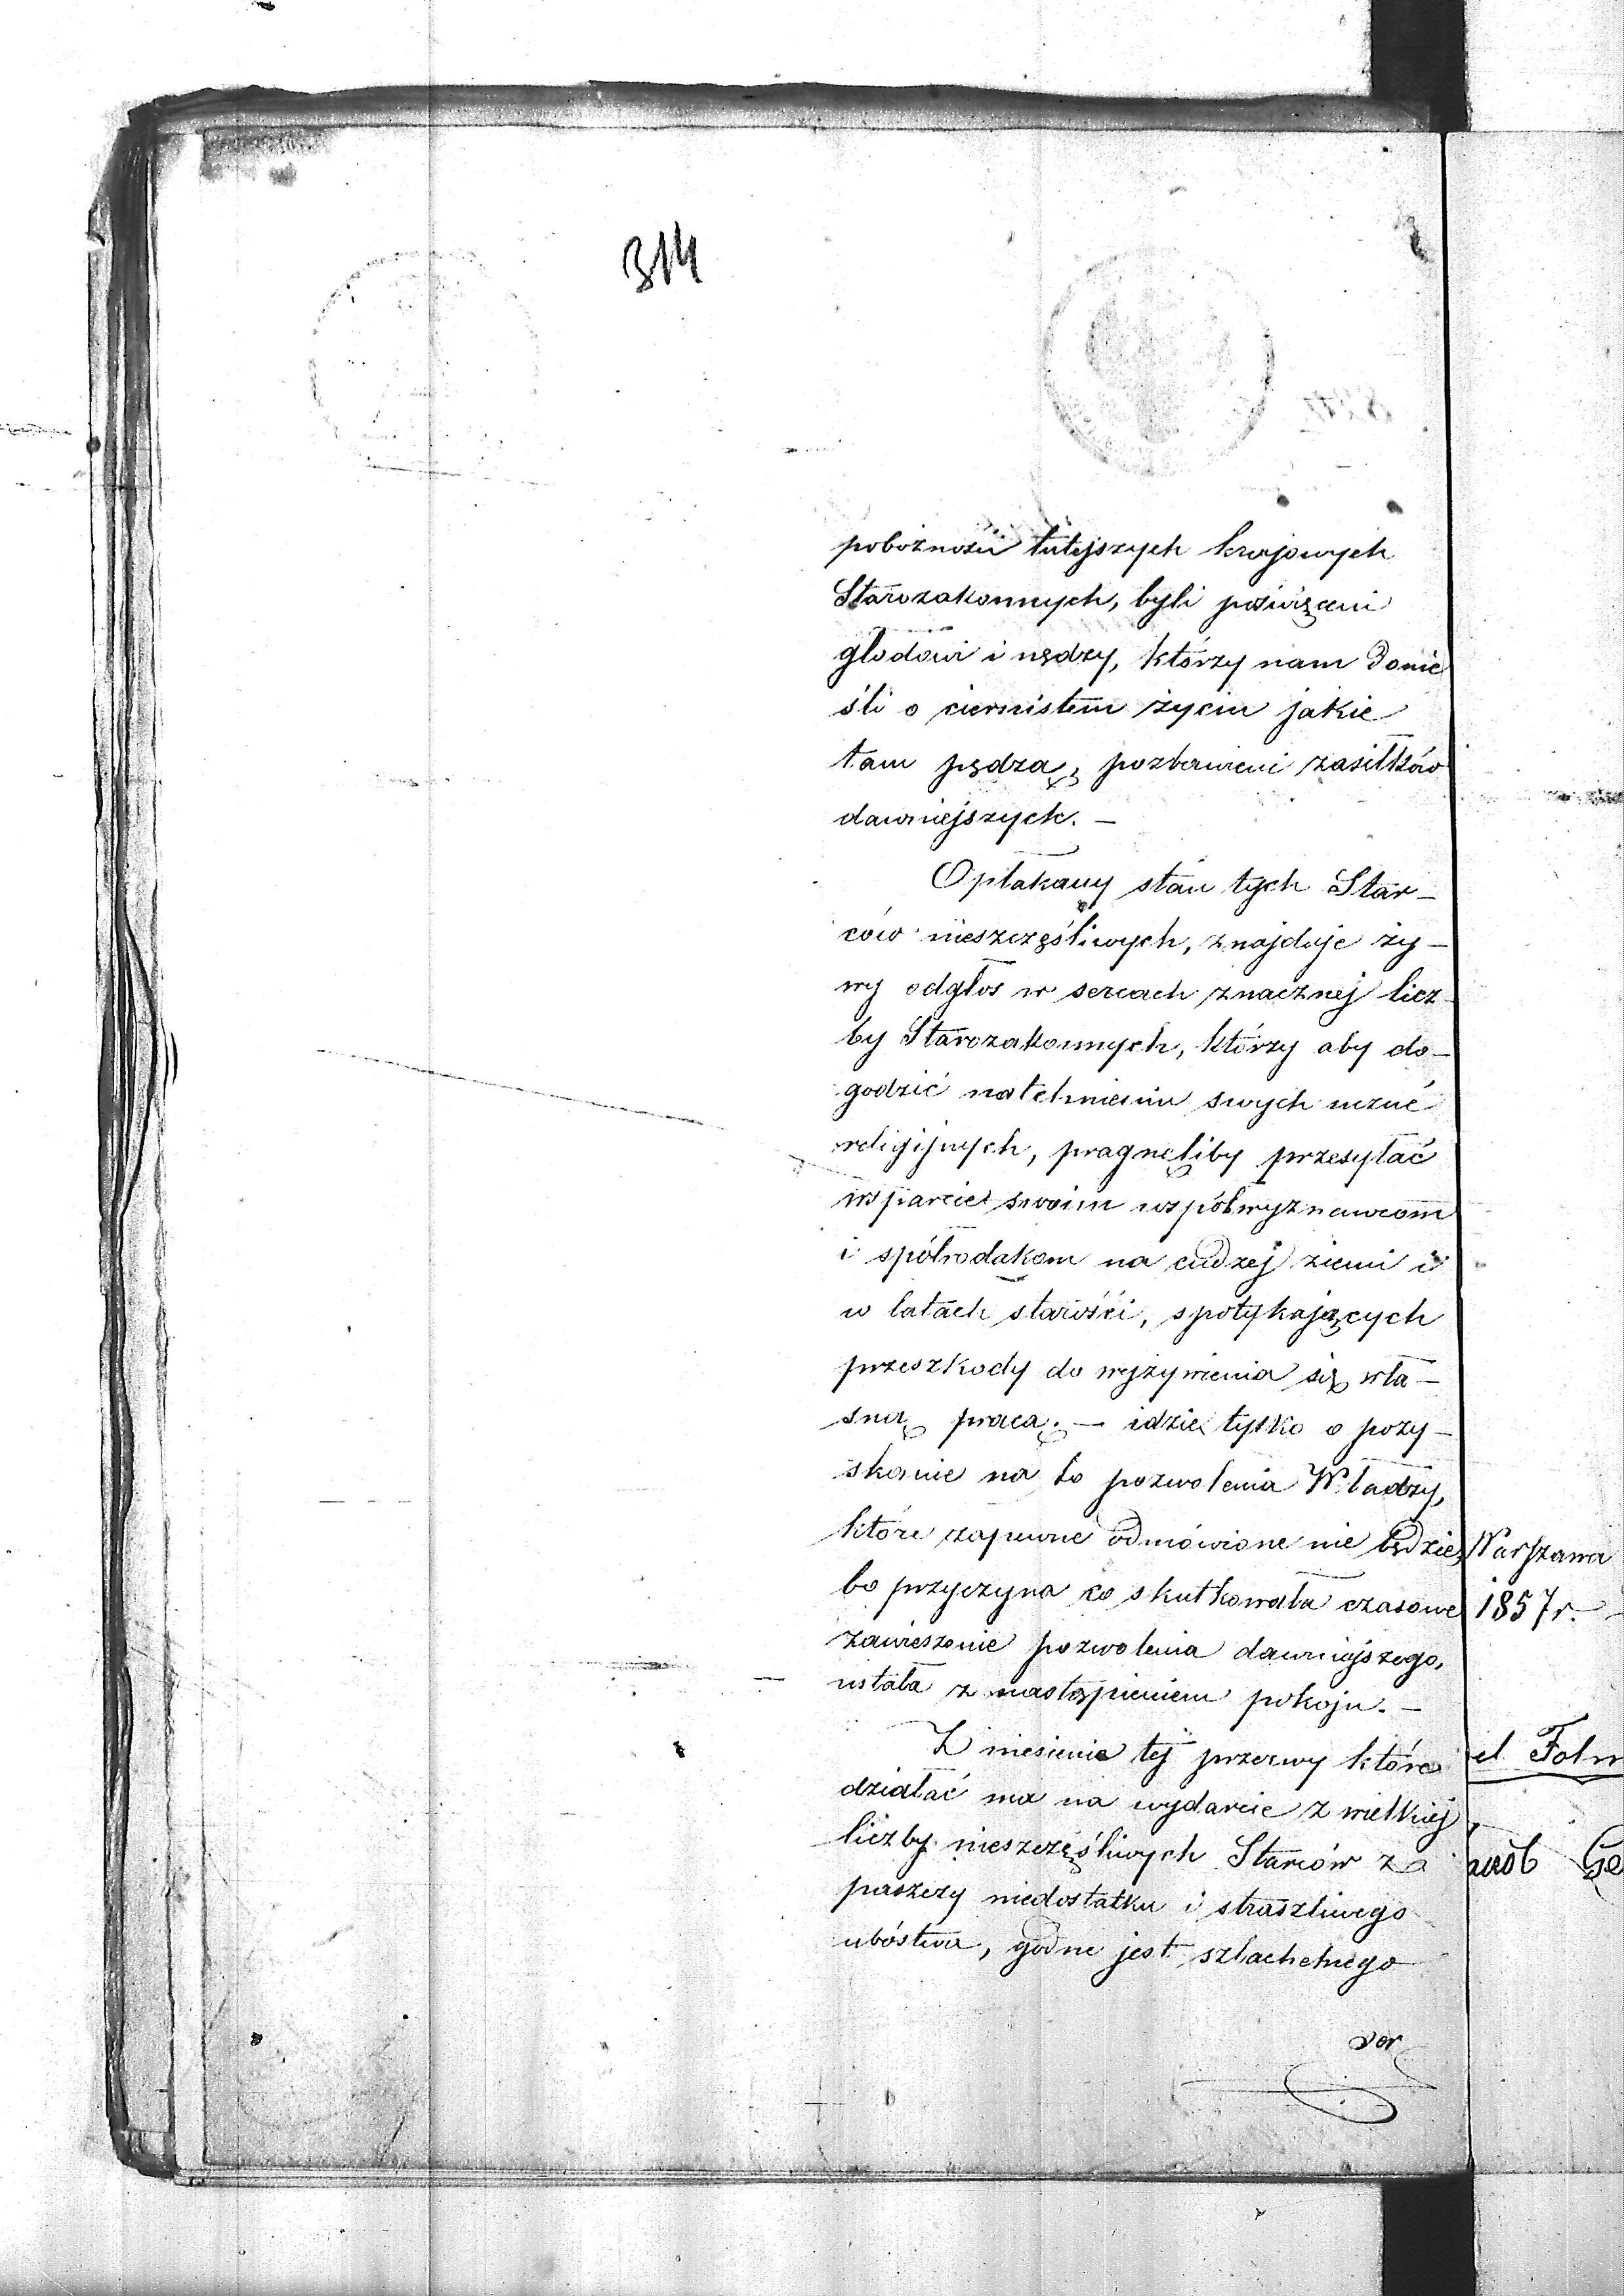 314
pobożności tutejszych krajowych
Starozakonnych, byli poświęceni
głodowi i nędzy, którzy nam donie
śli o ciernistem życiu jakie
tam pędzą, pozbawieni zasiłków
dawniejszych. —
Opłakany stan tych Star-
ców nieszczęśliwych, znajduje ży-
wy odgłos w sercach znacznej licz-
by Starozakonnych, którzy aby do-
godzić natchnieniu swych uczuć
religijnych, pragnęliby przesyłać
wsparcie swoim współwyznawcom
i spółrodakom na cudzej ziemi i
w latach starości, spotykających
przeszkody do wyżywienia się wła-
sną pracą; — idzie tylko o pozy-
skanie na to pozwolenia Władzy,
które zapewne odmówione nie będzie,
bo przyczyna co skutkowała czasowe
zawieszenie pozwolenia dawniejszego,
ustała z nastąpieniem pokoju. —
Zniesienie tej przerwy która
działać ma na wydarcie z wielkiej
liczby nieszczęśliwych Starców z
paszczy niedostatku i straszliwego
ubóstwa, godne jest szlachetnego
Warszawa
1857 r. -
el Foln
akób Ge